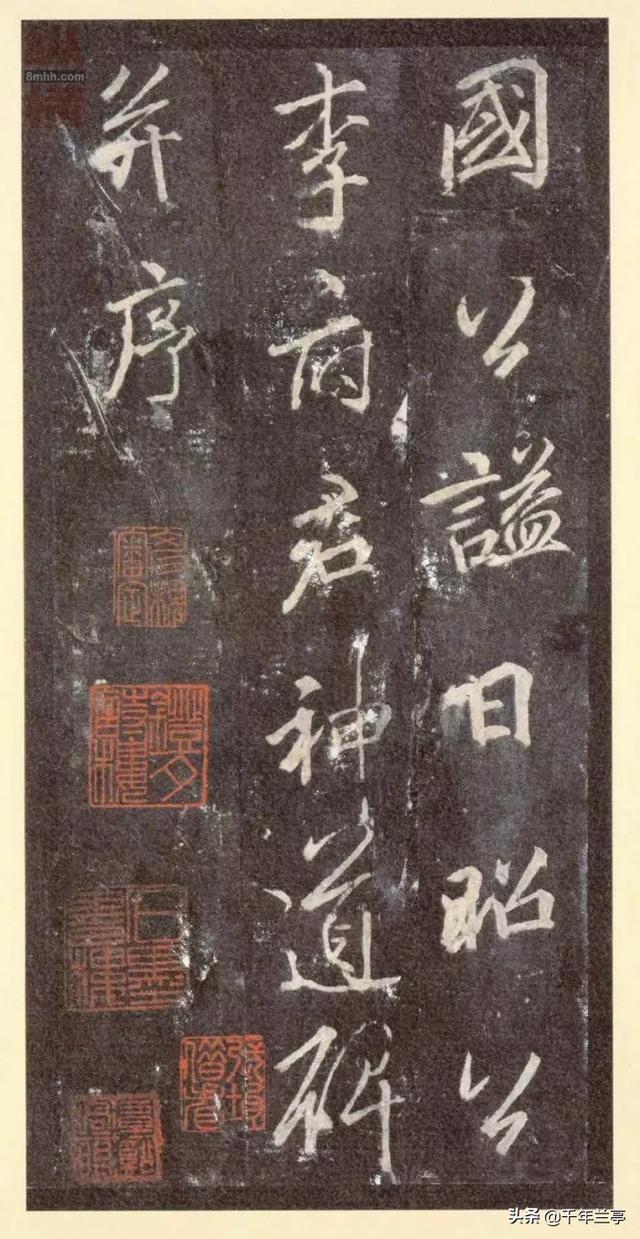 國公謚曰昭公
李府君神道碑
并序
8mhh.com
头条 @千年兰亭